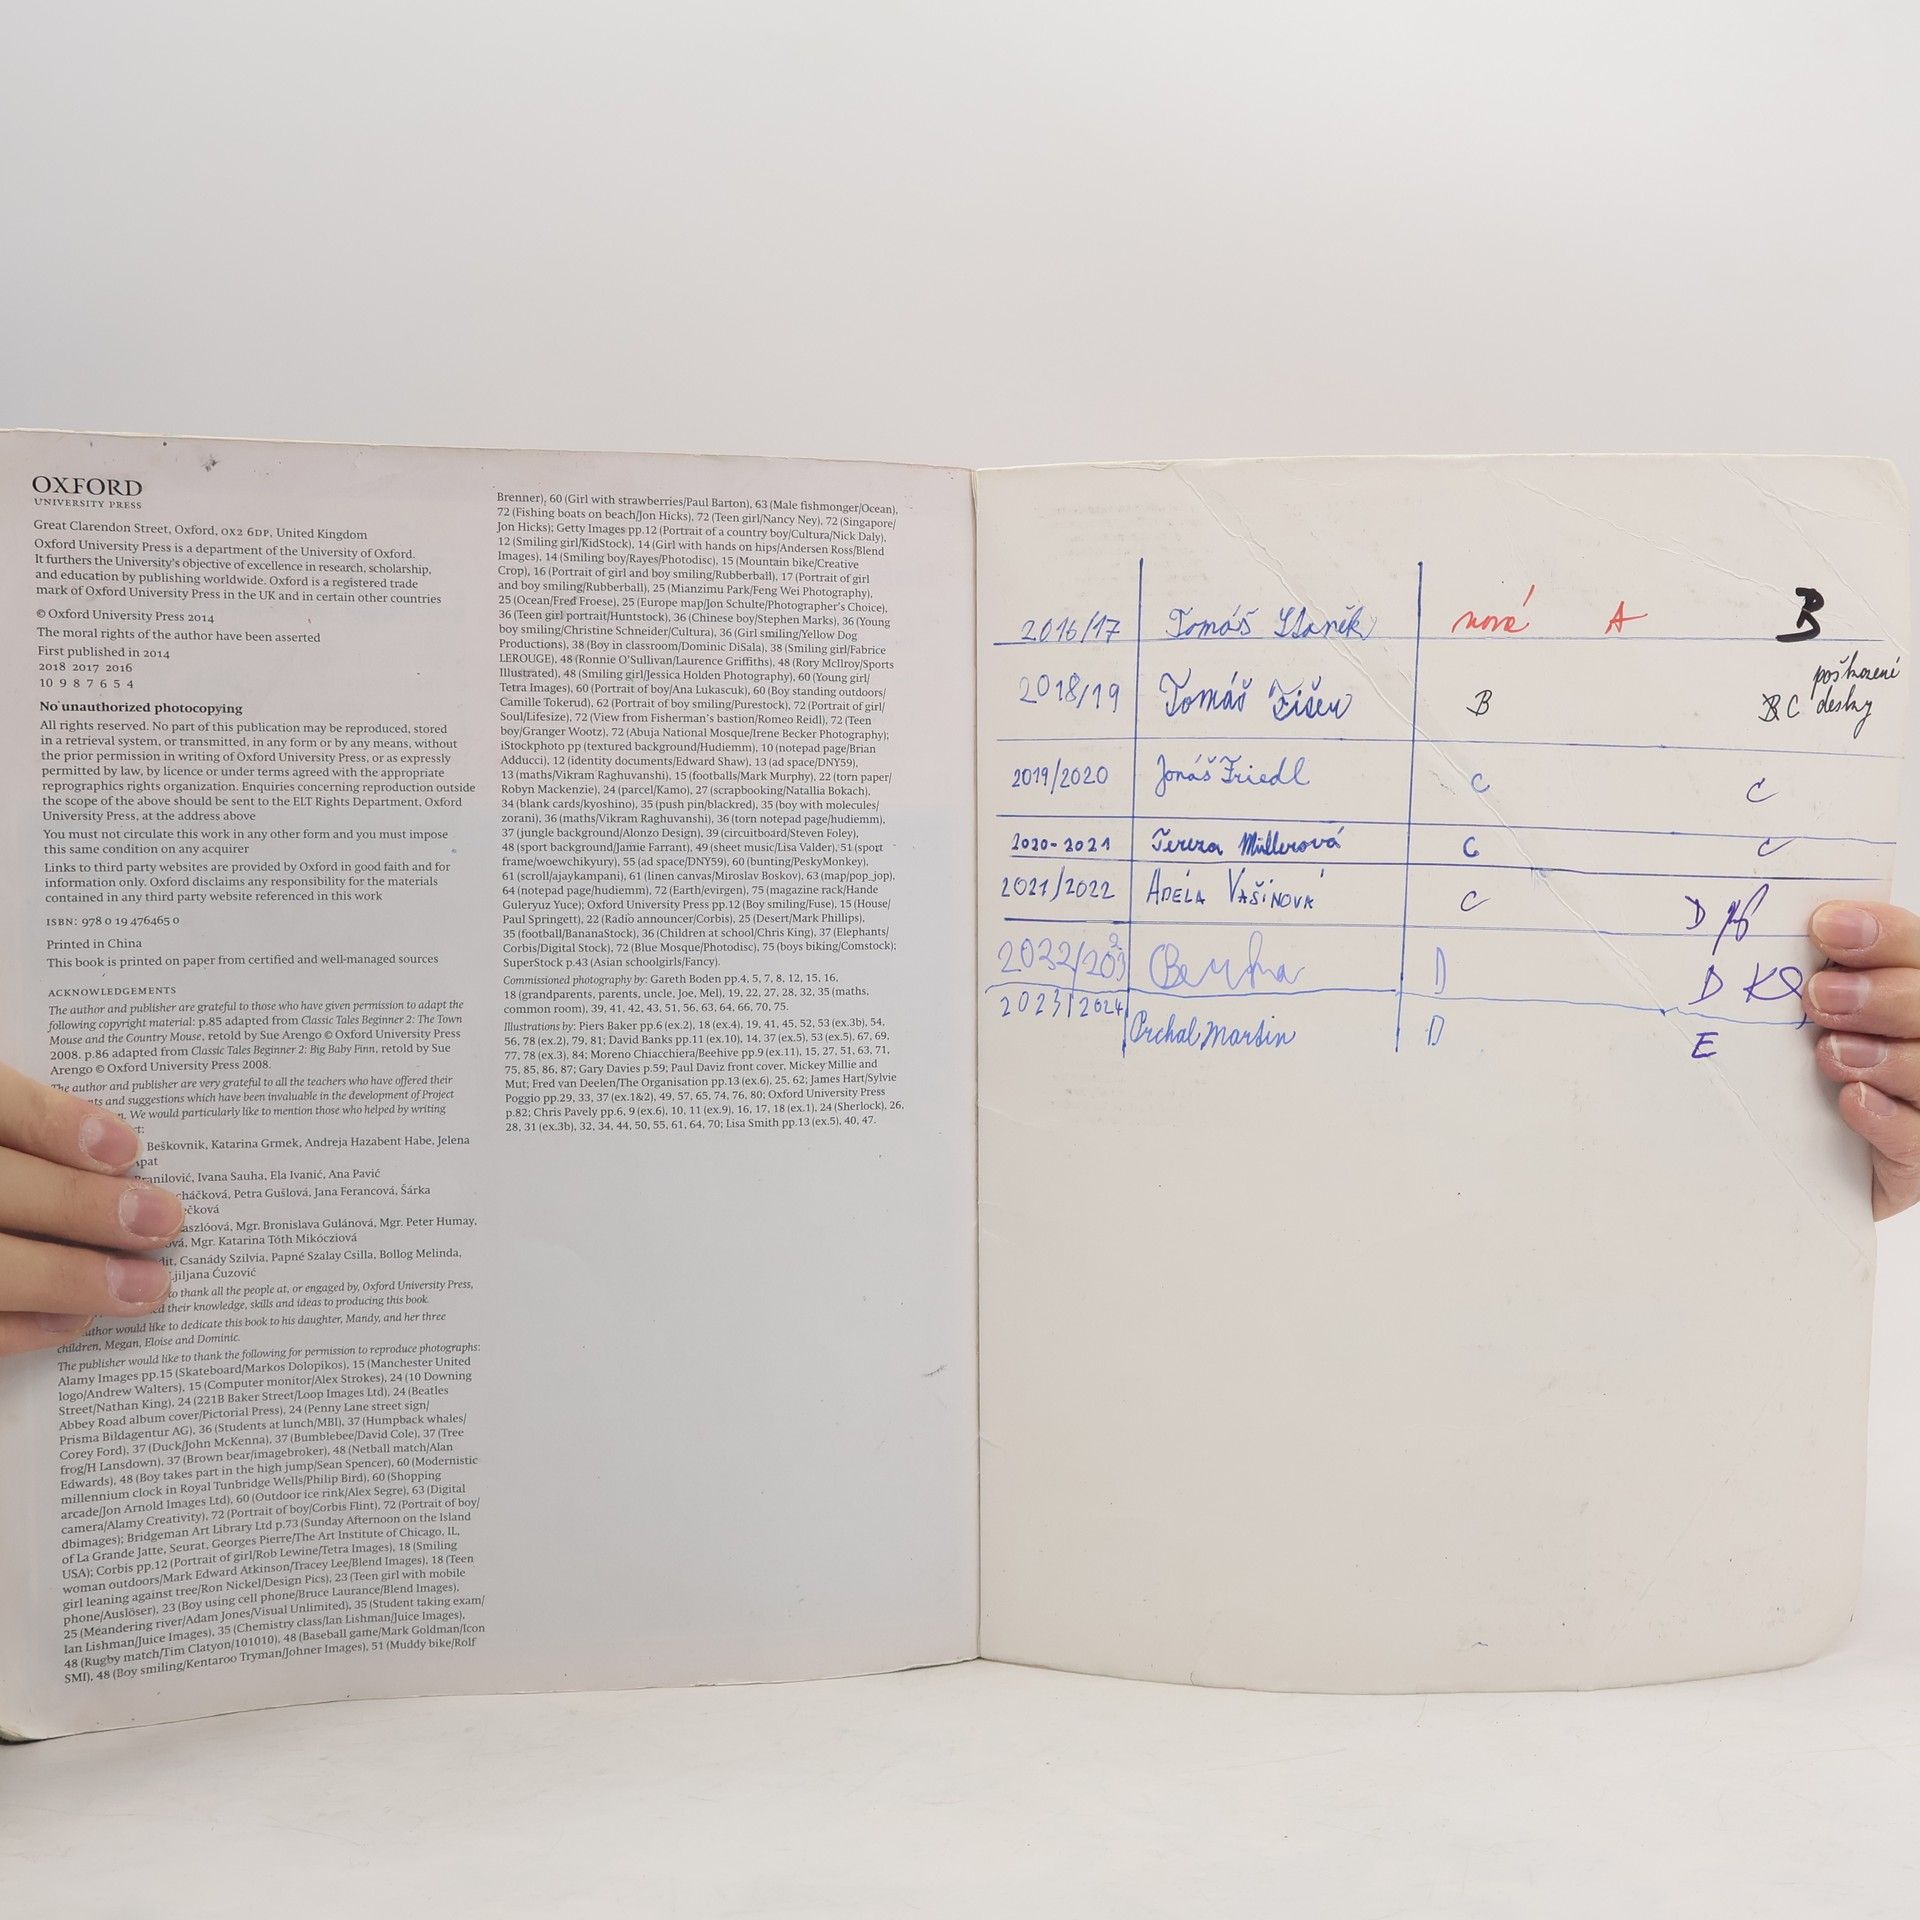 OXFORD
UNIVERSITY PRESS
Great Clarendon Street, Oxford, OX2 6DP, United Kingdom
Oxford University Press is a department of the University of Oxford.
It furthers the University's objective of excellence in research, scholarship,
and education by publishing worldwide. Oxford is a registered trade
mark of Oxford University Press in the UK and in certain other countries
© Oxford University Press 2014
The moral rights of the author have been asserted
First published in 2014
2018 2017 2016
10 9 8 7 6 5 4
No unauthorized photocopying
All rights reserved. No part of this publication may be reproduced, stored
in a retrieval system, or transmitted, in any form or by any means, without
the prior permission in writing of Oxford University Press, or as expressly
permitted by law, by licence or under terms agreed with the appropriate
reprographics rights organization. Enquiries concerning reproduction outside
the scope of the above should be sent to the ELT Rights Department, Oxford
University Press, at the address above
You must not circulate this work in any other form and you must impose
this same condition on any acquirer
Links to third party websites are provided by Oxford in good faith and for
information only. Oxford disclaims any responsibility for the materials
contained in any third party website referenced in this work
ISBN: 978 0 19 476465 0
Printed in China
This book is printed on paper from certified and well-managed sources
ACKNOWLEDGEMENTS
The author and publisher are grateful to those who have given permission to adapt the
following copyright material: p.85 adapted from Classic Tales Beginner 2: The Town
Mouse and the Country Mouse, retold by Sue Arengo © Oxford University Press
2008. p.86 adapted from Classic Tales Beginner 2: Big Baby Finn, retold by Sue
Arengo © Oxford University Press 2008.
The author and publisher are very grateful to all the teachers who have offered their
and suggestions which have been invaluable in the development of Project
We would particularly like to mention those who helped by writing
Beškovnik, Katarina Grmek, Andreja Hazabent Habe, Jelena
Branilović, Ivana Sauha, Ela Ivanić, Ana Pavić
Petra Gušlová, Jana Ferancová, Šárka
Mgr. Bronislava Gulánová, Mgr. Peter Humay,
Mgr. Katarina Tóth Mikócziová
Csanády Szilvia, Papné Szalay Csilla, Bollog Melinda,
Ljiljana Ćuzović
to thank all the people at, or engaged by, Oxford University Press,
their knowledge, skills and ideas to producing this book.
author would like to dedicate this book to his daughter, Mandy, and her three
children, Megan, Eloise and Dominic.
The publisher would like to thank the following for permission to reproduce photographs:
Alamy Images pp.15 (Skateboard/Markos Dolopikos), 15 (Manchester United
logo/Andrew Walters), 15 (Computer monitor/Alex Strokes), 24 (10 Downing
Street/Nathan King), 24 (221B Baker Street/Loop Images Ltd), 24 (Beatles
Abbey Road album cover/Pictorial Press), 24 (Penny Lane street sign/
Prisma Bildagentur AG), 36 (Students at lunch/MBI), 37 (Humpback whales/
Corey Ford), 37 (Duck/John McKenna), 37 (Bumblebee/David Cole), 37 (Tree
frog/H Lansdown), 37 (Brown bear/imagebroker), 48 (Netball match/Alan
Edwards), 48 (Boy takes part in the high jump/Sean Spencer), 60 (Modernistic
millennium clock in Royal Tunbridge Wells/Philip Bird), 60 (Shopping
arcade/Jon Arnold Images Ltd), 60 (Outdoor ice rink/Alex Segre), 63 (Digital
camera/Alamy Creativity), 72 (Portrait of boy/Corbis Flint), 72 (Portrait of boy/
dbimages); Bridgeman Art Library Ltd p.73 (Sunday Afternoon on the Island
of La Grande Jatte, Seurat, Georges Pierre/The Art Institute of Chicago, IL,
USA); Corbis pp.12 (Portrait of girl/Rob Lewine/Tetra Images), 18 (Smiling
woman outdoors/Mark Edward Atkinson/Tracey Lee/Blend Images), 18 (Teen
girl leaning against tree/Ron Nickel/Design Pics), 23 (Teen girl with mobile
phone/Auslöser), 23 (Boy using cell phone/Bruce Laurance/Blend Images),
25 (Meandering river/Adam Jones/Visual Unlimited), 35 (Student taking exam/
Ian Lishman/Juice Images), 35 (Chemistry class/Ian Lishman/Juice Images),
48 (Rugby match/Tim Clatyon/101010), 48 (Baseball game/Mark Goldman/Icon
SMI), 48 (Boy smiling/Kentaroo Tryman/Johner Images), 51 (Muddy bike/Rolf
Brenner), 60 (Girl with strawberries/Paul Barton), 63 (Male fishmonger/Ocean),
72 (Fishing boats on beach/Jon Hicks), 72 (Teen girl/Nancy Ney), 72 (Singapore/
Jon Hicks); Getty Images pp.12 (Portrait of a country boy/Cultura/Nick Daly),
12 (Smiling girl/KidStock), 14 (Girl with hands on hips/Andersen Ross/Blend
Images), 14 (Smiling boy/Rayes/Photodisc), 15 (Mountain bike/Creative
Crop), 16 (Portrait of girl and boy smiling/Rubberball), 17 (Portrait of girl
and boy smiling/Rubberball), 25 (Mianzimu Park/Feng Wei Photography),
25 (Ocean/Fred Froese), 25 (Europe map/Jon Schulte/Photographer's Choice),
36 (Teen girl portrait/Huntstock), 36 (Chinese boy/Stephen Marks), 36 (Young
boy smiling/Christine Schneider/Cultura), 36 (Girl smiling/Yellow Dog
Productions), 38 (Boy in classroom/Dominic DiSala), 38 (Smiling girl/Fabrice
LEROUGE), 48 (Ronnie O'Sullivan/Laurence Griffiths), 48 (Rory McIlroy/Sports
Illustrated), 48 (Smiling girl/Jessica Holden Photography), 60 (Young girl/
Tetra Images), 60 (Portrait of boy/Ana Lukascuk), 60 (Boy standing outdoors/
Camille Tokerud), 62 (Portrait of boy smiling/Purestock), 72 (Portrait of girl/
Soul/Lifesize), 72 (View from Fisherman's bastion/Romeo Reidl), 72 (Teen
boy/Granger Wootz), 72 (Abuja National Mosque/Irene Becker Photography);
iStockphoto pp (textured background/Hudiemm), 10 (notepad page/Brian
Adducci), 12 (identity documents/Edward Shaw), 13 (ad space/DNY59),
13 (maths/Vikram Raghuvanshi), 15 (footballs/Mark Murphy), 22 (torn paper/
Robyn Mackenzie), 24 (parcel/Kamo), 27 (scrapbooking/Natallia Bokach),
34 (blank cards/kyoshino), 35 (push pin/blackred), 35 (boy with molecules/
zorani), 36 (maths/Vikram Raghuvanshi), 36 (torn notepad page/hudiemm),
37 (jungle background/Alonzo Design), 39 (circuitboard/Steven Foley),
48 (sport background/Jamie Farrant), 49 (sheet music/Lisa Valder), 51 (sport
frame/woewchikyury), 55 (ad space/DNY59), 60 (bunting/PeskyMonkey),
61 (scroll/ajaykampani), 61 (linen canvas/Miroslav Boskov), 63 (map/pop_jop),
64 (notepad page/hudiemm), 72 (Earth/evirgen), 75 (magazine rack/Hande
Guleryuz Yuce); Oxford University Press pp.12 (Boy smiling/Fuse), 15 (House/
Paul Springett), 22 (Radio announcer/Corbis), 25 (Desert/Mark Phillips),
35 (football/BananaStock), 36 (Children at school/Chris King), 37 (Elephants/
Corbis/Digital Stock), 72 (Blue Mosque/Photodisc), 75 (boys biking/Comstock);
SuperStock p.43 (Asian schoolgirls/Fancy).
Commissioned photography by: Gareth Boden pp.4, 5, 7, 8, 12, 15, 16,
18 (grandparents, parents, uncle, Joe, Mel), 19, 22, 27, 28, 32, 35 (maths,
common room), 39, 41, 42, 43, 51, 56, 63, 64, 66, 70, 75.
Illustrations by: Piers Baker pp.6 (ex.2), 18 (ex.4), 19, 41, 45, 52, 53 (ex.3b), 54,
56, 78 (ex.2), 79, 81; David Banks pp.11 (ex.10), 14, 37 (ex.5), 53 (ex.5), 67, 69,
77, 78 (ex.3), 84; Moreno Chiacchiera/Beehive pp.9 (ex.11), 15, 27, 51, 63, 71,
75, 85, 86, 87; Gary Davies p.59; Paul Daviz front cover, Mickey Millie and
Mut; Fred van Deelen/The Organisation pp.13 (ex.6), 25, 62; James Hart/Sylvie
Poggio pp.29, 33, 37 (ex.1&2), 49, 57, 65, 74, 76, 80; Oxford University Press
p.82; Chris Pavely pp.6, 9 (ex.6), 10, 11 (ex.9), 16, 17, 18 (ex.1), 24 (Sherlock), 26,
28, 31 (ex.3b), 32, 34, 44, 50, 55, 61, 64, 70; Lisa Smith pp.13 (ex.5), 40, 47.
2016/17 Tomáš Staněk nová A B
2018/19 Tomáš Fišer B C poškozené
desky
2019/2020 Jonáš Friedl C C
2020-2021 Tereza Müllerová C C
2021/2022 ADÉLA VAŠINOVÁ C D
D D
2023/2024 Prchal Martin D E